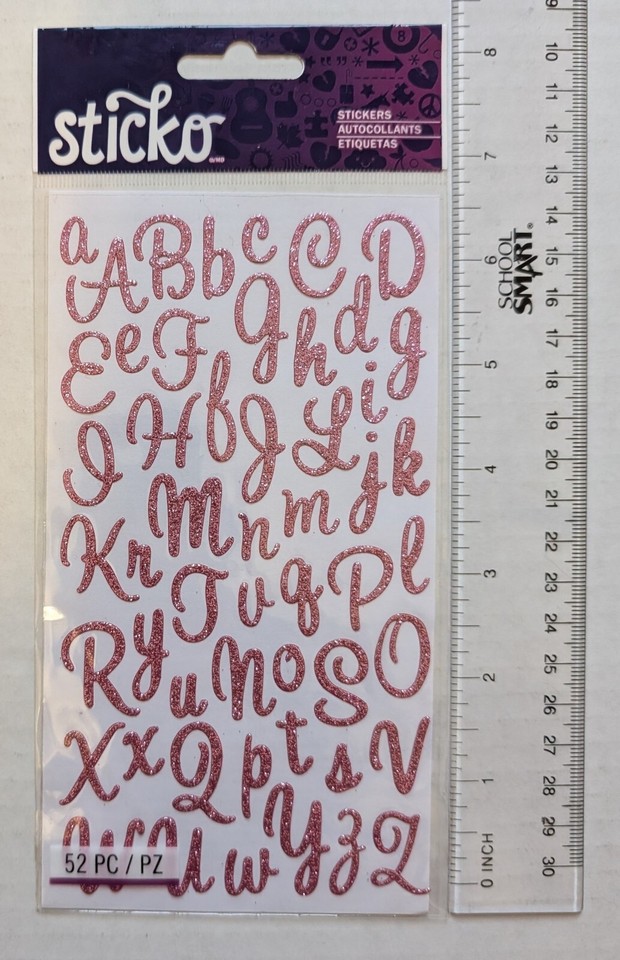 sticko
STICKERS
AUTOCOLLANTS
ETIQUETAS
a A B b c C D
E e F G h d g
I H f J L i j k
K r M n m l
T v q P
R y u N o S O
X x Q p t s V
W U w Y z Z
52 PC / PZ
SMART®
SCHOOL
8
7
6
5
4
3
2
1
0 INCH
9
10
11
12
13
14
15
16
17
18
19
20
21
22
23
24
25
26
27
28
29
30